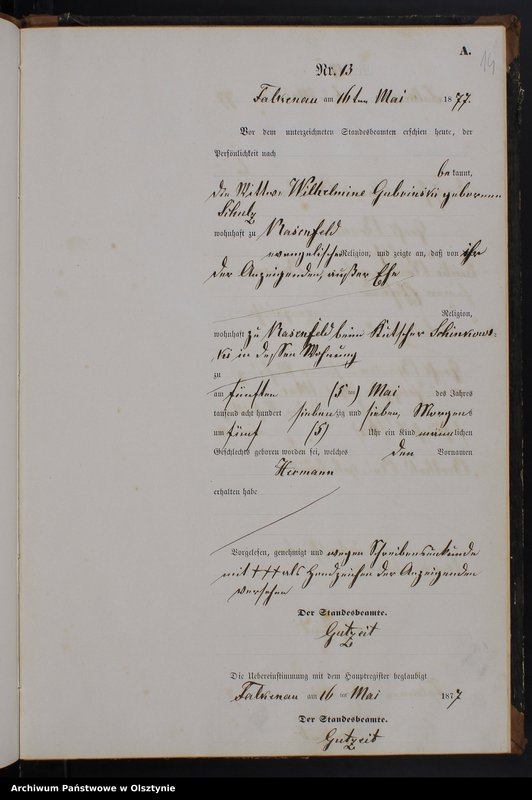 A.
14
Nr. 13
Falkenau am 16ten Mai 1877.
Vor dem unterzeichneten Standesbeamten erschien heute, der
Persönlichkeit nach
bekannt,
die Wittwe Wilhelmine geborene
Schulz
wohnhaft zu Rosenfeld
evangelischer Religion, und zeigte an, daß von ihr
der Anzeigenden, außer Ehe
Religion,
wohnhaft zu Rosenfeld beim Kutscher Schinkows-
ki in dessen Wohnung
zu
am fünften (5ten) Mai des Jahres
tausend acht hundert siebenzig und sieben, Morgens
um fünf (5) Uhr ein Kind männlichen
Geschlechts geboren worden sei, welches den Vornamen
Hermann
erhalten habe
Vorgelesen, genehmigt und wegen Schreibensunkunde
mit +++ als Handzeichen der Anzeigenden
versehen
Der Standesbeamte.
Gutzeit
Die Uebereinstimmung mit dem Hauptregister beglaubigt
Falkenau am 16ten Mai 1877
Der Standesbeamte.
Gutzeit
Archiwum Państwowe w Olsztynie